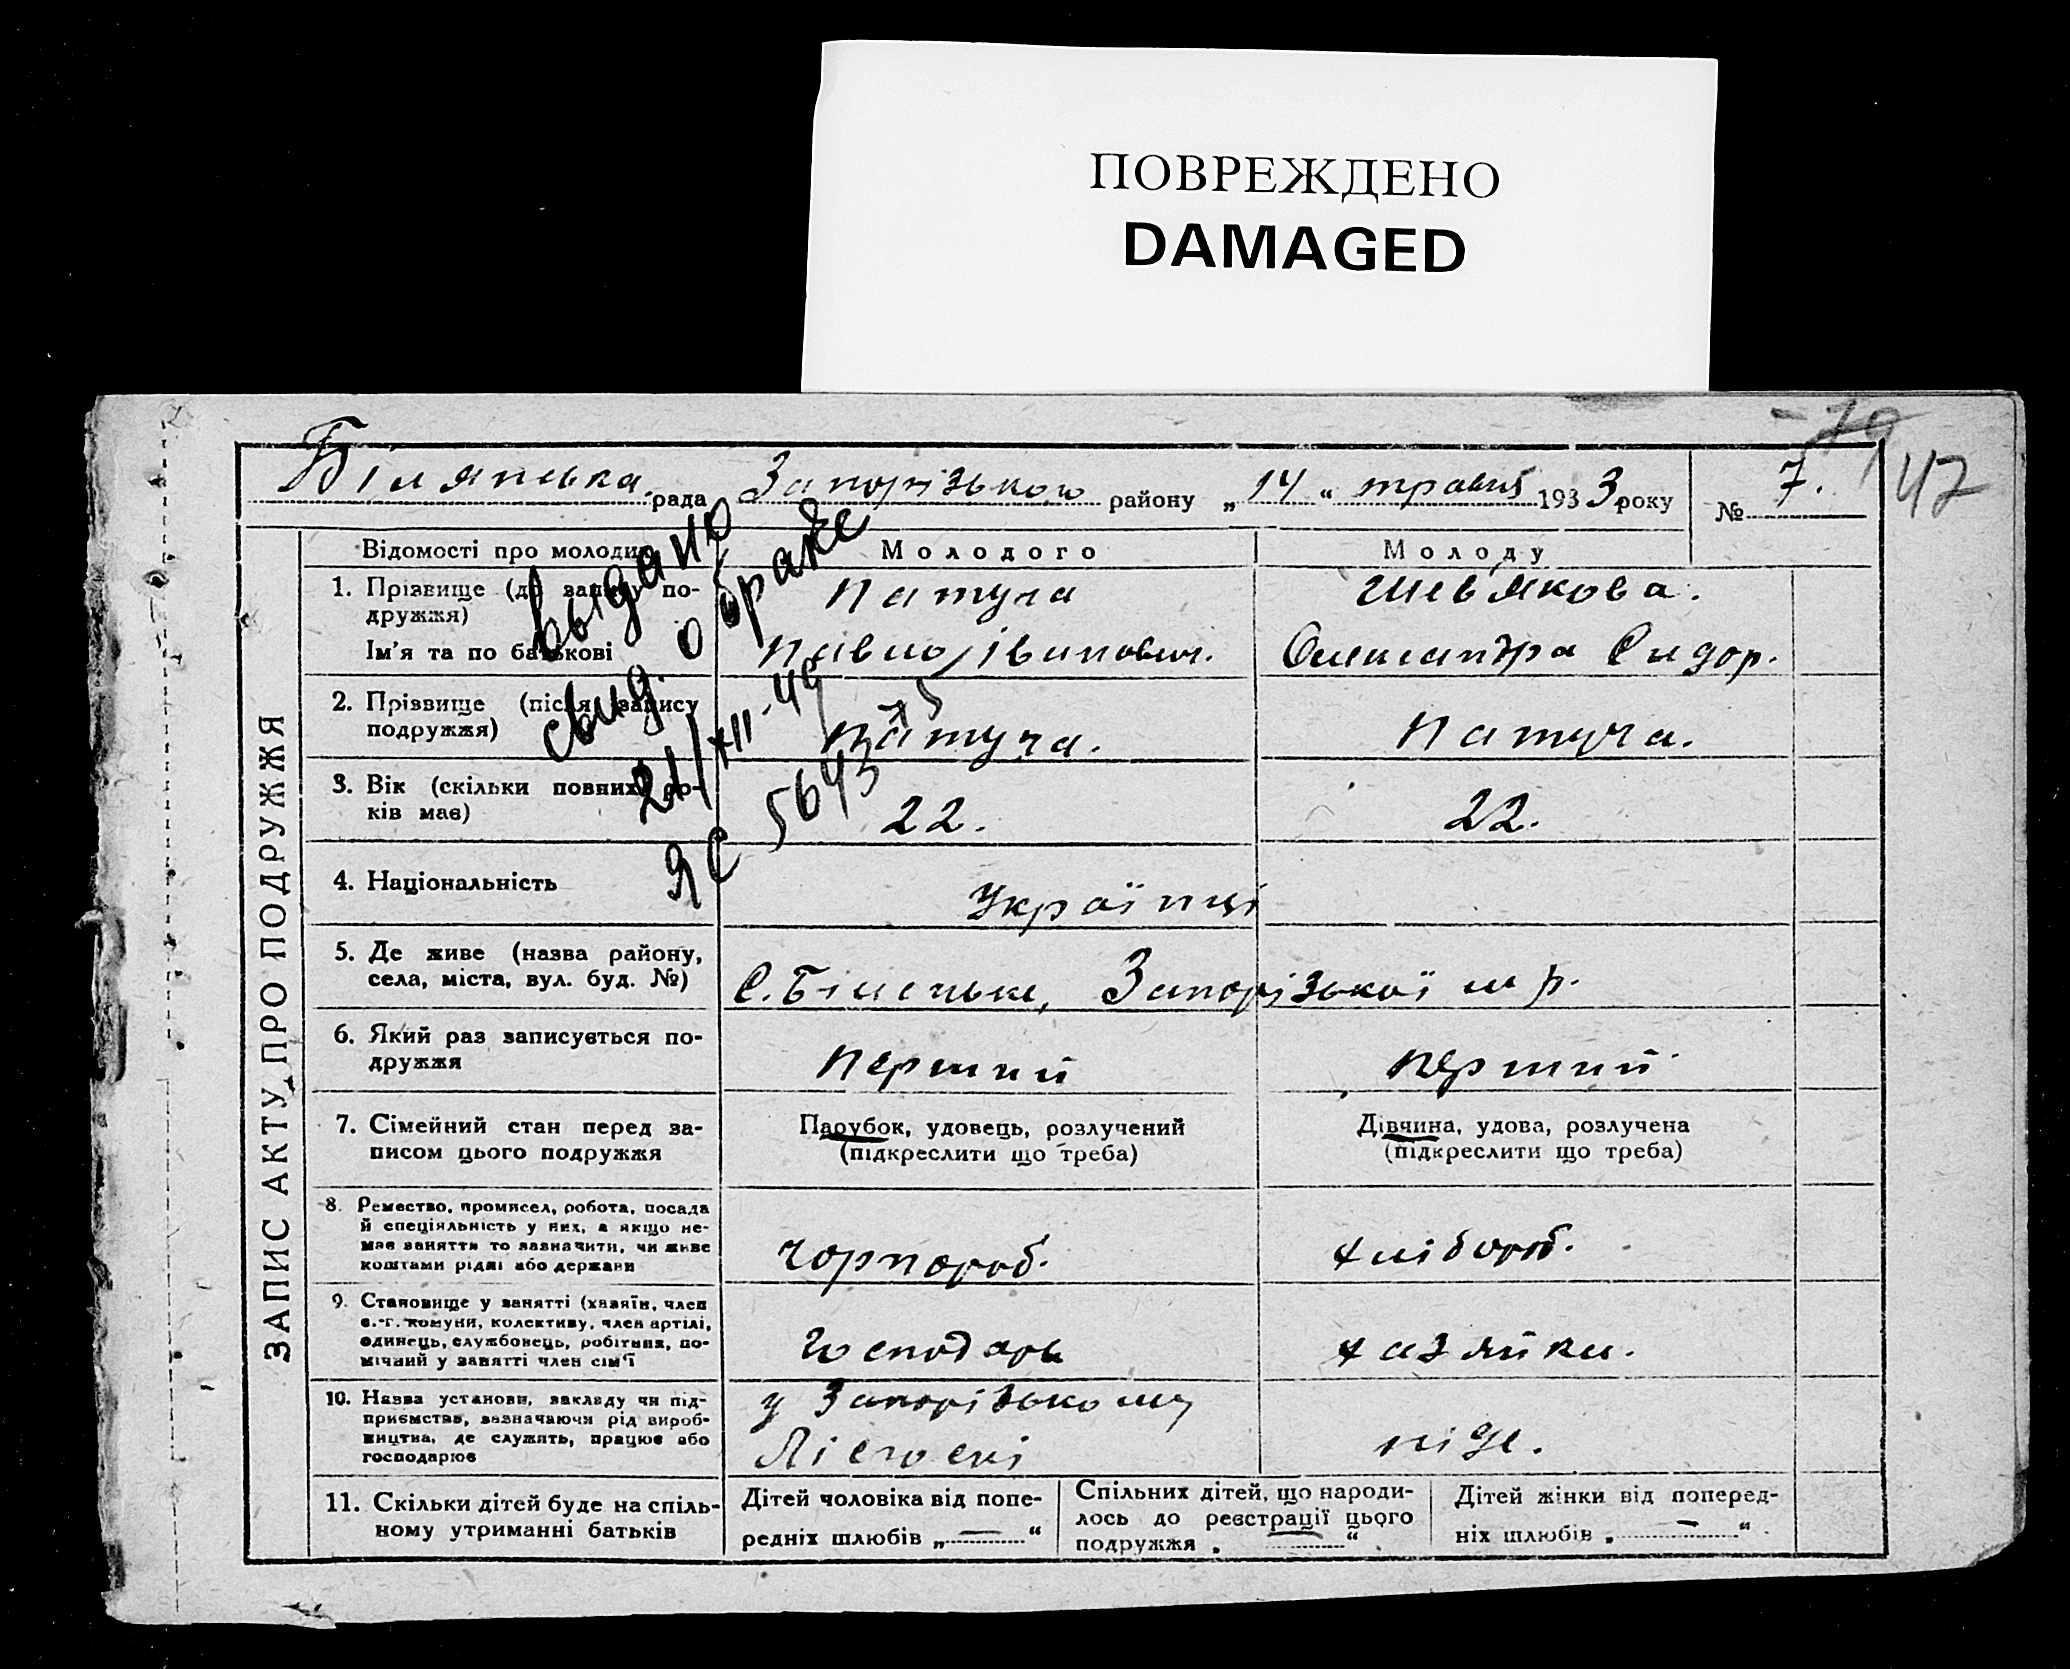 ПОВРЕЖДЕНО
DAMAGED
47
Білянська рада Запорізького району „14“ травня 1933 року № 7.
ЗАПИС АКТУ ПРО ПОДРУЖЖЯ
Відомості про молодих Молодого Молоду
1. Прізвище (до запису по-
дружжя) Патуча Шевякова.
Ім'я та по батькові Павло Іванович. Олександра Сидор.
2. Прізвище (після запису
подружжя) Патуча. Патуча.
3. Вік (скільки повних ро-
ків має) 22. 22.
4. Національність Українці
5. Де живе (назва району,
села, міста, вул. буд. №) С. Біленьке, Запорізької м р.
6. Який раз записується по-
дружжя перший перший
7. Сімейний стан перед за-
писом цього подружжя
Парубок, удовець, розлучений
(підкреслити що треба)
Дівчина, удова, розлучена
(підкреслити що треба)
8. Ремество, промисел, робота, посада
й спеціяльність у них, а якщо не-
має заняття то зазначити, чи живе
коштами рідні або держави
чорнороб. хлібороб.
9. Становище у занятті (хазяїн, член
с.-г. комуни, колективу, член артілі,
одинець, службовець, робітник, по-
мічний у занятті член сім'ї
господарь хазяйка.
10. Назва установи, закладу чи під-
приємства, зазначаючи рід вироб-
ництва, де служить, працює або
господарює
у Запорізькому
ніде.
11. Скільки дітей буде на спіль-
ному утриманні батьків
Дітей чоловіка від попе-
редніх шлюбів „—“
Спільних дітей, що народи-
лось до реєстрації цього
подружжя „—“
Дітей жінки від поперед-
ніх шлюбів „—“
Выдано
свид. о браке
21/XII-49
ЯС 5643